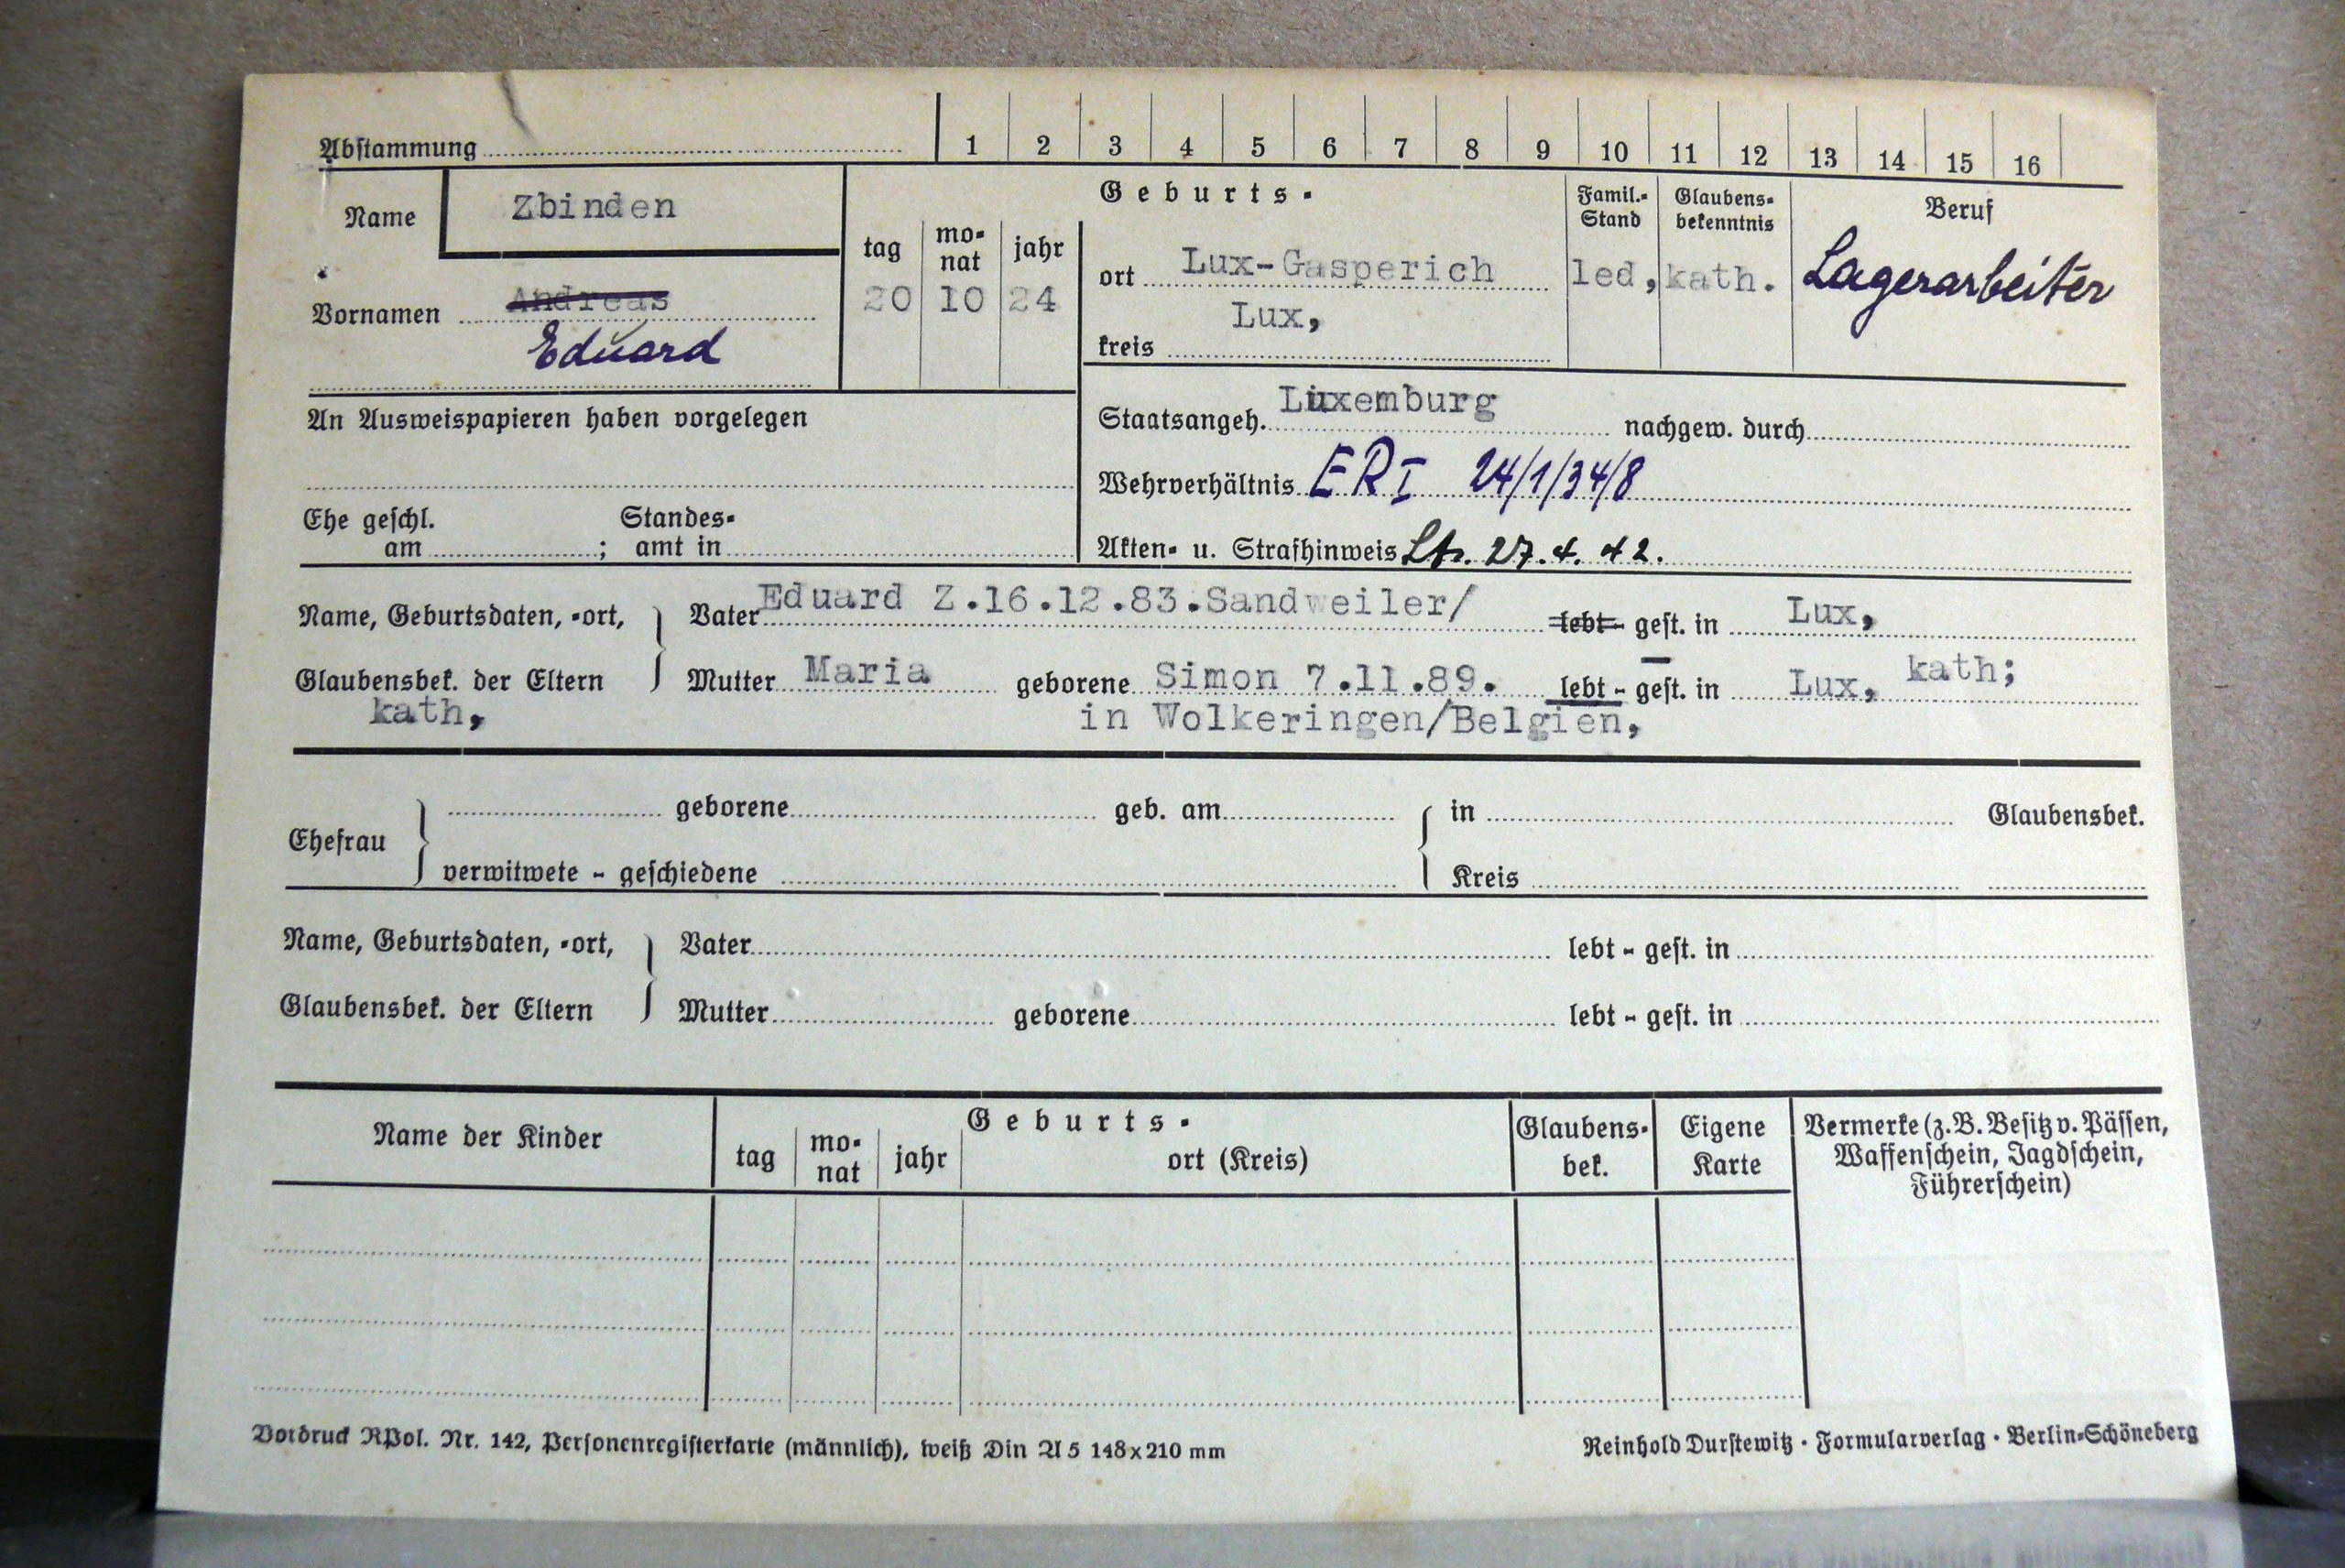 Abstammung 1 2 3 4 5 6 7 8 9 10 11 12 13 14 15 16
Name Zbinden
Vornamen Andreas
Eduard
Geburts-
tag monat jahr
20 10 24
ort Lux-Gasperich
Lux,
kreis
Famil.-
Stand
led,
Glaubens-
bekenntnis
kath.
Beruf
Lagerarbeiter
An Ausweispapieren haben vorgelegen
Staatsangeh. Luxemburg nachgew. durch
Wehrverhältnis ERI 24/1/34/8
Ehe geschl. Standes-
am ; amt in
Akten- u. Strafhinweis 27.4.42.
Name, Geburtsdaten, -ort, Vater Eduard Z.16.12.83.Sandweiler/ lebt - gest. in Lux,
Glaubensbek. der Eltern Mutter Maria geborene Simon 7.11.89. lebt - gest. in Lux, kath;
kath, in Wolkeringen/Belgien,
Ehefrau geborene geb. am in Glaubensbek.
verwitwete - geschiedene Kreis
Name, Geburtsdaten, -ort, Vater lebt - gest. in
Glaubensbek. der Eltern Mutter geborene lebt - gest. in
Name der Kinder
Geburts-
tag
mo-
nat
jahr
ort (Kreis)
Glaubens-
bek.
Eigene
Karte
Vermerke (z. B. Besitz v. Pässen,
Waffenschein, Jagdschein,
Führerschein)
Vordruck RPol. Nr. 142, Personenregisterkarte (männlich), weiß Din A 5 148x210 mm
Reinhold Durstewitz · Formularverlag · Berlin-Schöneberg